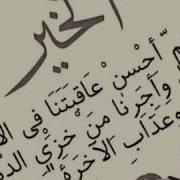 الخير
ّأحْسن عَاقبَتَنَا فى
وأجرنا من خزي
وَعَذَابِ الآخرة